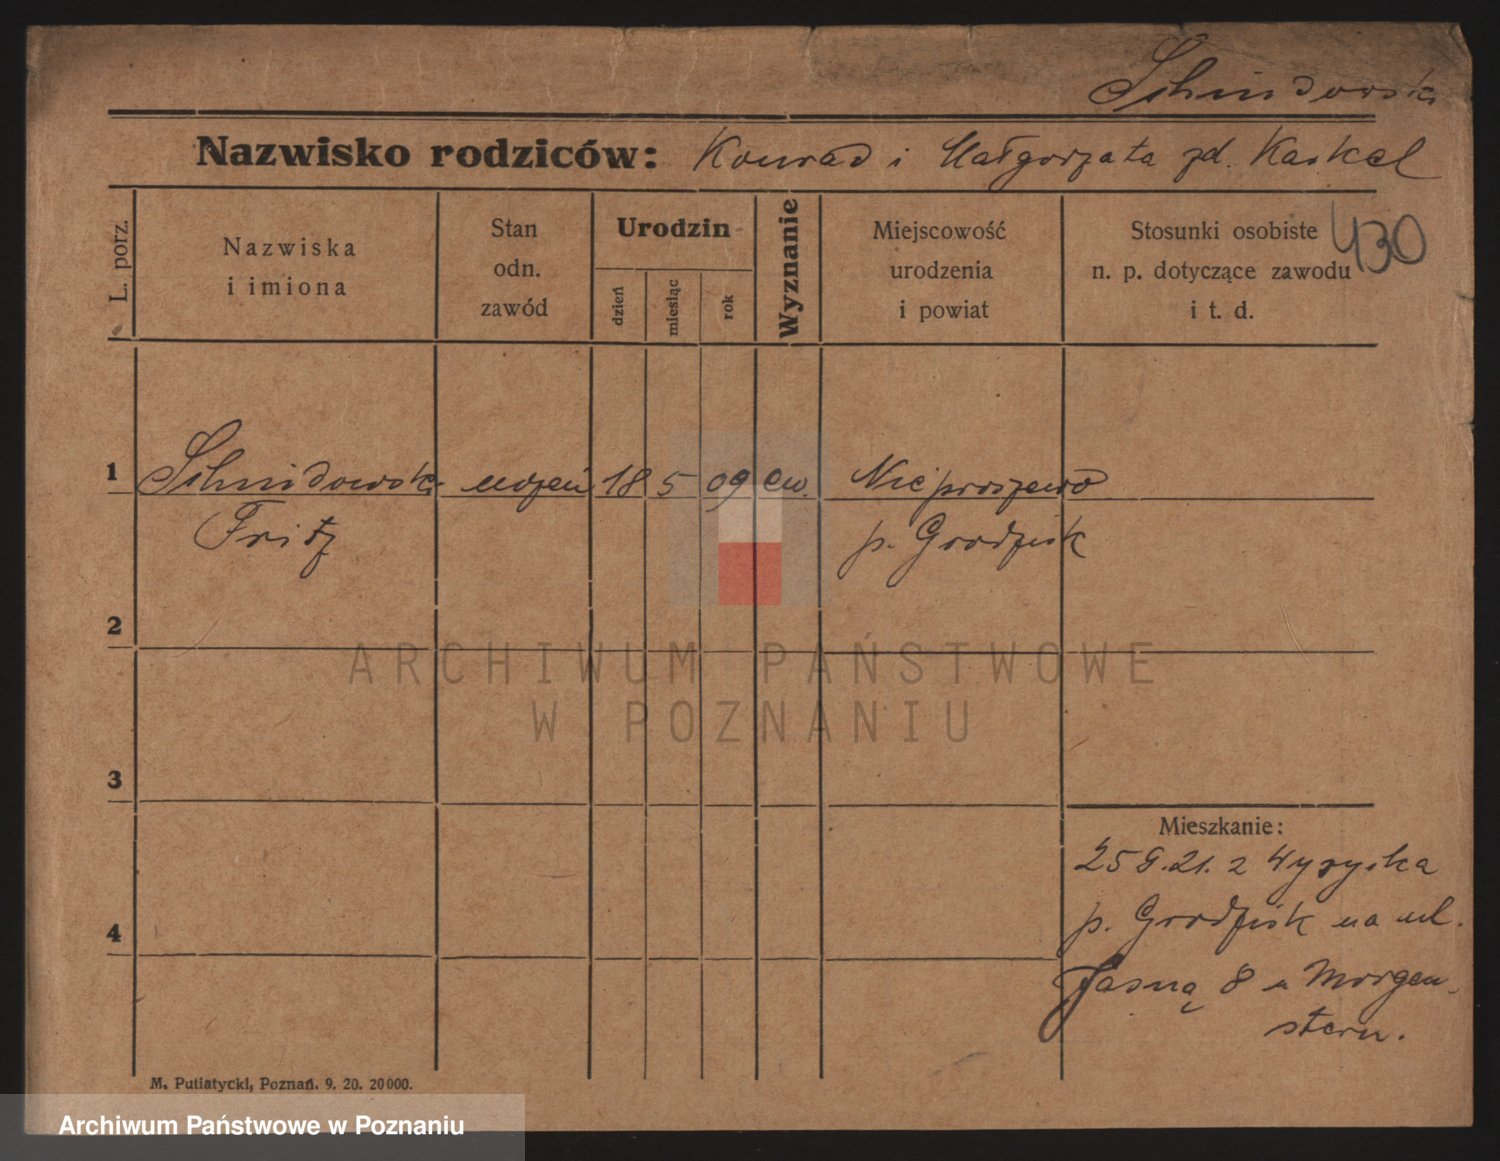 Schmidowski
Nazwisko rodziców: Konrad i Małgorzata zd. Kaskel
L. porz.
Nazwiska
i imiona
Stan
odn.
zawód
Urodzin
dzień
miesiąc
rok
Wyznanie
Miejscowość
urodzenia
i powiat
Stosunki osobiste
n. p. dotyczące zawodu
i t. d.
430
1 Schmidowski uczeń 18 5 09 ew. Nieproszewo
Fritz p. Grodzisk
2
3
4
Mieszkanie:
25 9. 21. z
p. Grodzisk na ul.
Jasną 8 u Morgen-
stern.
M. Putiatycki, Poznań. 9. 20. 20000.
ARCHIWUM PAŃSTWOWE
W POZNANIU
Archiwum Państwowe w Poznaniu